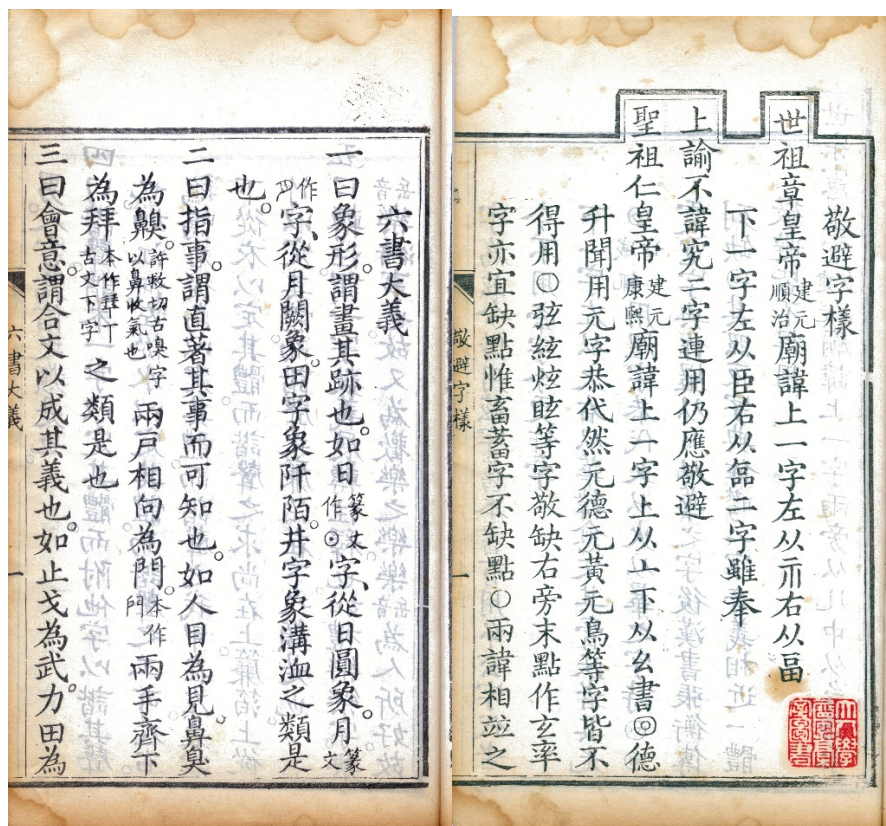 敬避字樣
世祖章皇帝建元順治廟諱上一字左从示右从畐
下一字左从臣右从㗊二字雖奉
上諭不諱究二字連用仍應敬避
聖祖仁皇帝建元康熙廟諱上一字上从亠下从幺書◎德
升聞用元字恭代然元德元黃元鳥等字皆不
得用○弦絃炫眩等字敬缺右旁末點作玄率
字亦宜缺點惟畜蓄字不缺點○兩諱相竝之
敬避字樣 一
六書大義
一曰象形。謂畫其跡也。如日篆文作⊙字、從日圓象。月篆文
作字、從月闕象。田字象阡陌。井字象溝洫之類是
也。
二曰指事。謂直著其事而可知也。如人目為見。鼻臭
為齅。許救切古嗅字以鼻收氣也兩戶相向為門。本作門兩手齊下
為拜本作丅古文下字之類是也
三曰會意。謂合文以成其義也。如止戈為武。力田為
六書大義 一